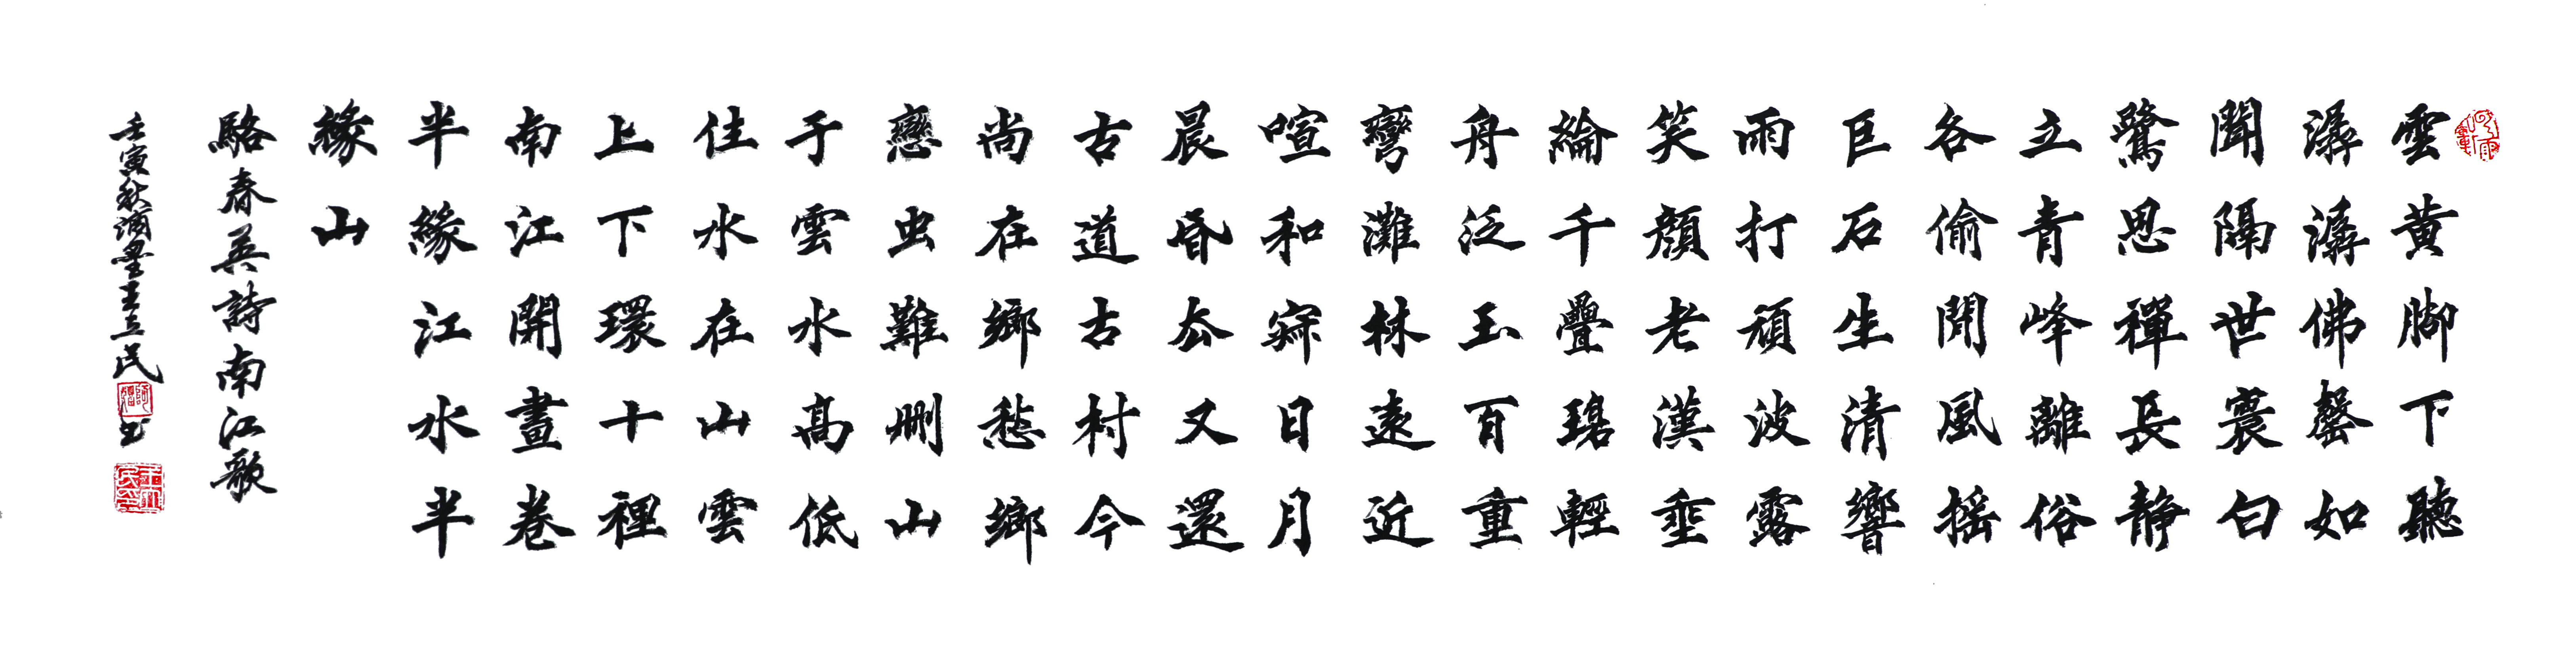 雲黄脚下聽
潺潺佛罄如
聞隔世裊白
鷺思禪長静
立青峰離俗
各偷閒風摇
巨石生清響
雨打頑波露
笑顔老漢垂
綸千疊碧輕
舟泛玉百重
彎灘林遠近
喧和寂日月
晨昏去又還
古道古村今
尚在鄉愁鄉
戀虫難删山
于雲水高低
住水在山雲
上下環十裡
南江開畫卷
半緣江水半
緣山
駱春英詩南江歌
壬寅秋滴墨王立民書